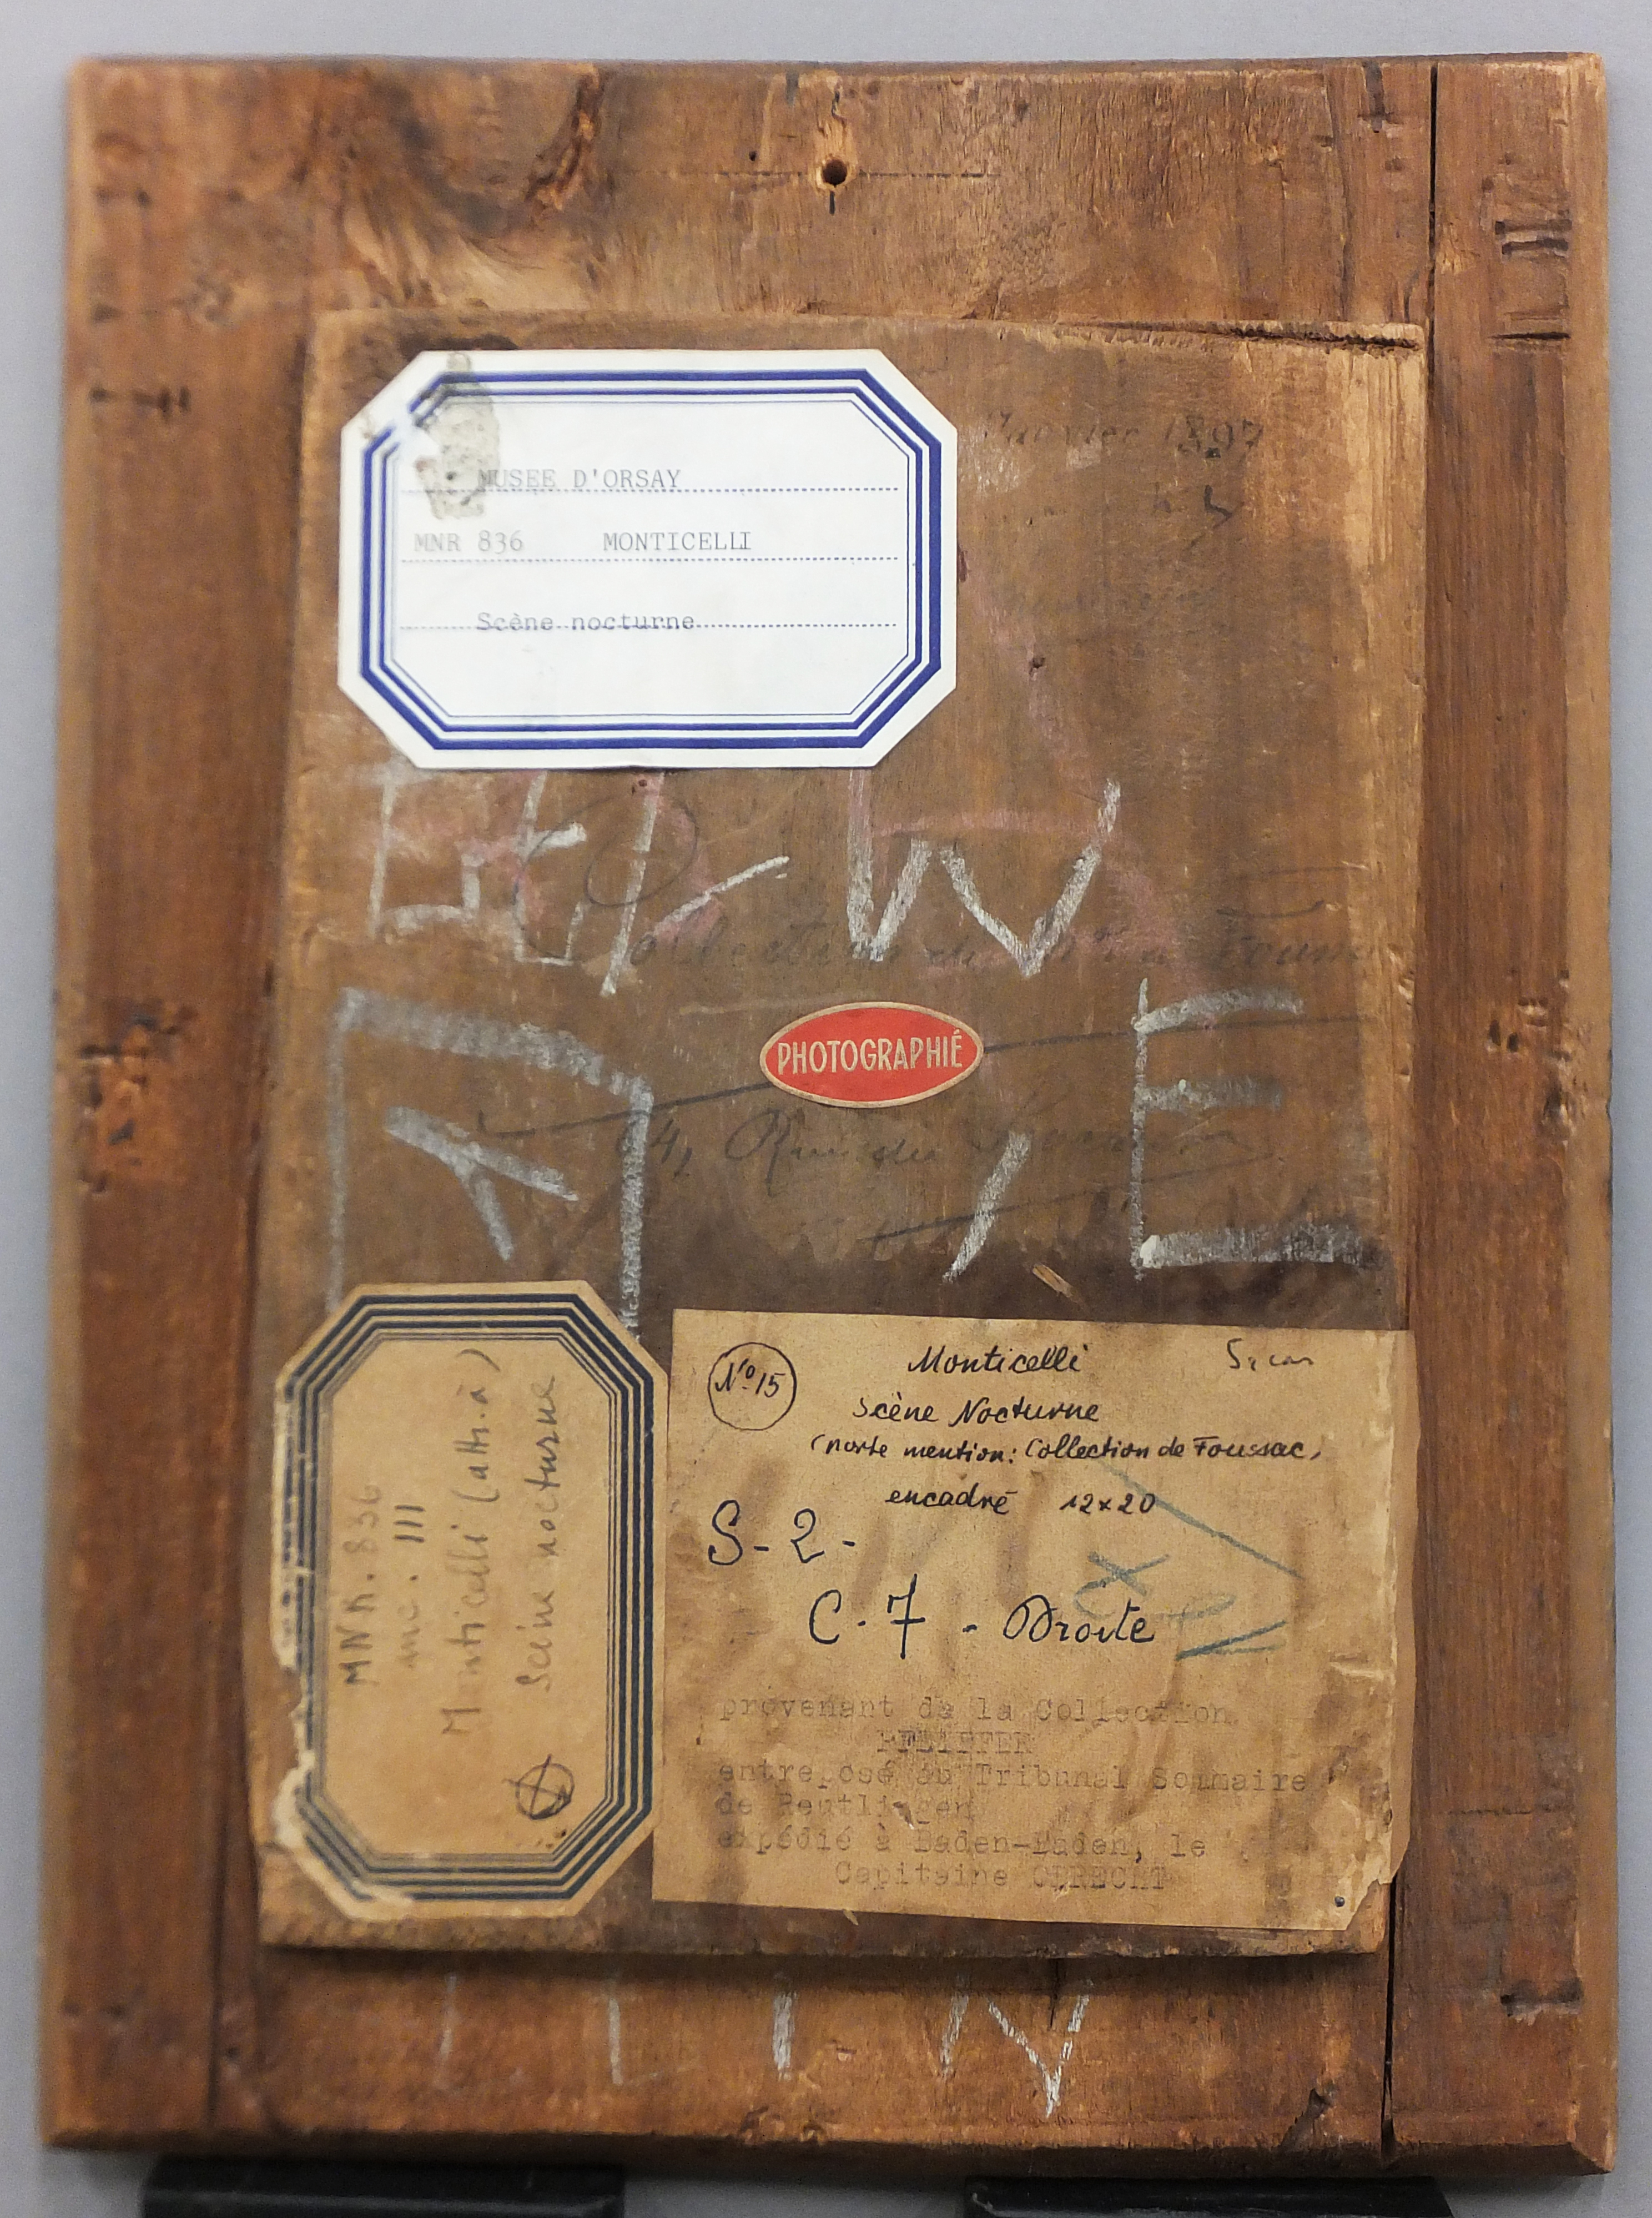 MUSEE D'ORSAY
MNR 836 MONTICELLI
Scène nocturne
Janvier 1897
W
Collection
PHOTOGRAPHIÉ
E
4, Rue du
N° 15
Monticelli
Scène Nocturne
(porte mention: Collection de Foussac)
encadré 12x20
S-2-
C.7 - Droite
provenant de la Collection
PFEIFFER
entreposé au Tribunal Sommaire
de Reutlingen
expédié à Baden-Baden, le
Capitaine
MNR.836
inc. III
Monticelli (attr. à)
Scène nocturne